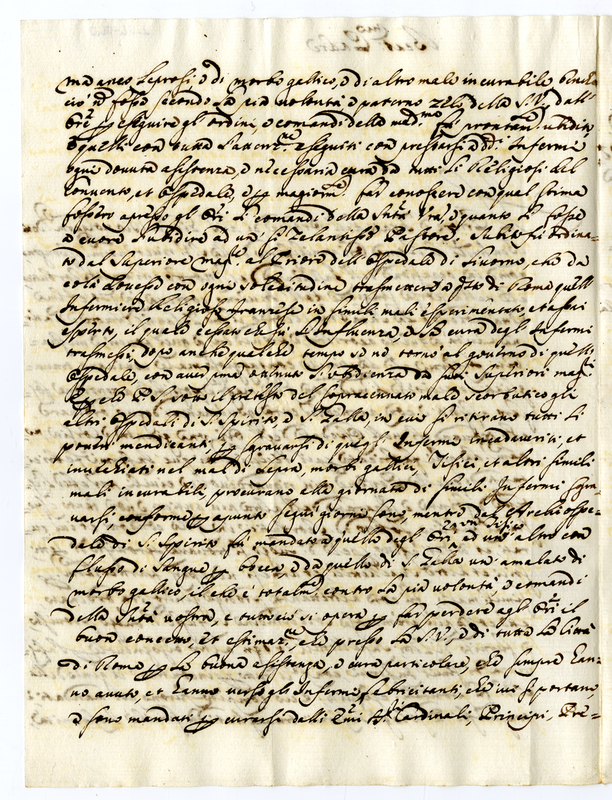 ma anco Leprosi, ò di morbo gallico, ò di altro male incurabile benche
ciò nõ fosse secondo la pia volontà, e paterno zelo della S.V., dall'
ori p eseguire gl'ordini, e comandi della med.ma si prontam.te ubidito
e quelli con tutta eseguiti con prestarsi à d.i Infermi
ogni dovuta assistenza, e necessaria cura da tutti li Religiosi del
Convento, et Ospedale, e p magiorm.te far conoscere con qual stima
fossero apresso gli ori li comandi della Sntà Vra, e quanto li fosse
à cuore l'ubidire ad un sì Zelantissº Pastore. Subito fù ordina=
to dal Superiore mag.re al Priore dell'Ospedale di Livorno, che da
colà dovesse con ogni sollecitudine trasmettere à qsto di Roma quell'
Infermiero Religioso franzese in simili mali esperimentato, et assai
esperto, il quale cessato che fù l'influenza, e la cura degl'Infermi
trasmessi, dopo anche qualche tempo se nè tornò al governo di quello
Ospedale, con aver prima ottenuto l'ubidienza da suoi Superiori mag.ri
P.S. sotto il pretesto del sopracennato male scorbutico gli
altri Ospedali di S. Spirito, e S. Galla, in cui si ritirano tutti li
poveri mendicanti, p sgravarsi di quegl'Infermi incadaveriti, et
invechiati nel mal di Lepra, morbi gallici, Tisici, et altri simili
mali incurabili, procurano alla giornata di simili Infermi sgra=
varsi conforme p apunto segui giorni sono, mentre dal Archiospe=
dale di S. Spirito fù mandato à quello degl'ori un Tisico, ed un'altro con
flusso di Sangue p bocca, e da quello di S. Galla un'amalato di
morbo gallico, il che è totalm.te contro la pia volontà, e comandi
della Sntà vostra, e tutto ciò si opera p far perdere agl'ori il
buon concetto, et estimaz.ne, che presso la S.V., e di tutta la Città
di Roma p la buona assistenza, e cura particolare, che sempre han=
no avuto, et hanno verso gl'Infermi febricitanti, che ivi si portano
e sono mandati p curarsi dalli Emi Sri Cardinali, Principi, Pre=